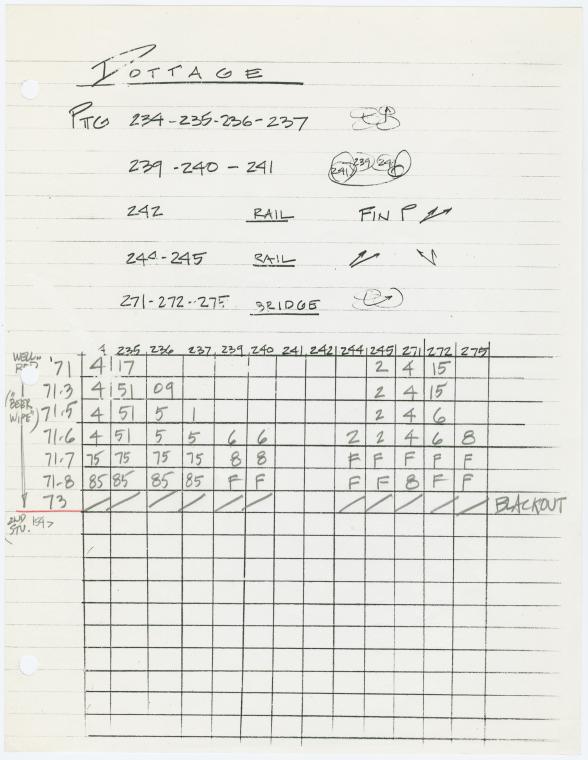 POTTAGE
PTG 234-235-236-237
239-240-241
241 239 240
242 RAIL FIN P
244-245 RAIL
271-272-275 BRIDGE
4 235 236 237 239 240 241 242 244 245 271 272 275
WELL..
'71 4 17 2 4 15
71.3 4 51 09 2 4 15
("BEER WIPE")
71.5 4 51 5 1 2 4 6
71.6 4 51 5 5 6 6 2 2 4 6 8
71.7 75 75 75 75 8 8 F F F F F
71.8 85 85 85 85 F F F F 8 F F
73 / / / / / / / / / / / BLACKOUT
2ND 154>
STU.